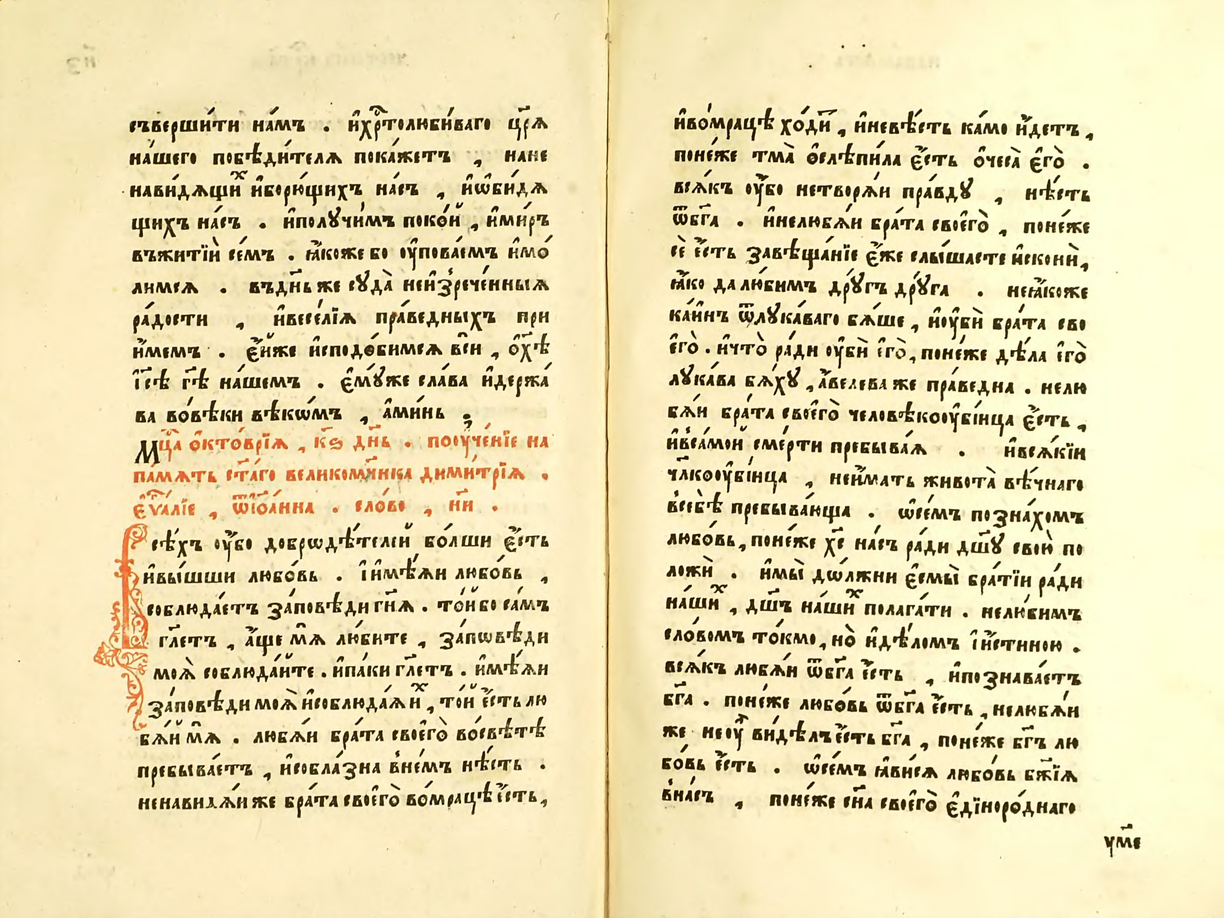 съверши́ти на́мъ . и҆хр҇толюби́ваго цр҃ѧ
на́шего побѣди́телѧ пока́жетъ , на не
нави́дѧщиⷯ и҆борю́щихъ на́съ , и҆ѡ҆би́дѧ
щихъ на́съ . и҆получи́мъ поко́й , и҆ми́ръ
въжитїѝ се́мъ . ꙗ҆́коже бо оу҆пова́емъ и҆мо́
лимсѧ . въдн҃ь же сꙋда̀ неи҆зрече́нныѧ
ра́дости , и҆весе́лїѧ пра́ведныхъ при
и҆́мемъ . є҆ѧ́же и҆сподо́бимсѧ вси̑ , ѡ҆хр҇ѣ̀
і҆с҃ѣ гд҇ѣ на́шемъ . є҆мꙋ́же сла́ва и҆держа́
ва вовѣ́ки вѣ́кѡмъ , а҆ми́нь .
Мц҇а о҆ктоврі́ѧ , кѕ дн҃ь . поꙋче́нїе на
па́мѧть ст҃а́го великомч҃нка дими́трїѧ .
є҆ѵⷢ҇алїе , ѿїѡ҆а́нна . сло́во , ни҃ .
Всѣ́хъ оу҆́бо добродѣ́телей бо́лши є҆́сть
и҆вы́шши любо́вь . і҆и҆мѣ́ѧи любо́вь ,
соблюда́етъ за́повѣди гн҇ѧ . то́й бо са́мъ
гл҃етъ , а҆́ще мѧ̀ лю́бите , за́пѡвѣди
моѧ̀ соблюда́йте . и҆па́ки гл҃етъ . и҆мѣ́ѧи
за́повѣди моѧ̀ и҆соблюда́ѧиⷯ , то́й є҆́сть лю
бѧ́й мѧ̀ . любѧ́и бра́та своего̀ восвѣ́тѣ
пребыва́етъ , и҆собла́зна вне́мъ нѣ́сть .
ненави́дѧи же бра́та своего̀ вомра́цѣ є҆́сть ,
и҆вомра́цѣ хо́дитъ , и҆невѣ́сть ка́мо и҆́детъ ,
поне́же тма̀ о҆слѣпи́ла є҆́сть о҆чеса̀ є҆го̀ .
всѧ́къ оу҆́бо нетворѧ́и пра́вдꙋ , нѣ́сть
ѿбг҃а . и҆нелюбѧ́и бра́та своего̀ , поне́же
сѐ є҆́сть завѣща́нїе є҆́же слы́шасте и҆сконѝ ,
ꙗ҆́ко да лю́бимъ дрꙋ́гъ дрꙋ́га . неꙗ҆́коже
ка́инъ ѿлꙋка́ваго бѧ́ше , и҆оу҆бѝ бра́та сво
его̀ . и҆что̀ ра́ди оу҆бѝ є҆го̀ , поне́же дѣ́ла є҆го̀
лꙋка́ва бѧ́хꙋ , а҆́велева же пра́ведна . нелю
бѧ́и бра́та своего̀ человѣкооу҆бі́йца є҆́сть ,
и҆вса́мой сме́рти пребыва́ѧ . и҆всѧ́кїи
чл҃коꙋбі́йца , неи҆́мать живота̀ вѣ́чнаго
всебѣ̀ пребыва́юща . ѡ҆се́мъ позна́хомъ
любо́вь , поне́же хр҇е на́съ ра́ди дш҃ꙋ свою̀ по
ложѝ . и҆мы̀ дѡ́лжни є҆смы̀ бра́тїи ра́ди
на́шиⷯ , дш҃ъ на́шиⷯ полага́ти . нелю́бимъ
сло́вомъ то́кмо , но̀ и҆дѣ́ломъ і҆и҆́стиною .
всѧ́къ любѧ́и ѿбг҃а є҆́сть , и҆познава́етъ
бг҃а . поне́же любо́вь ѿбг҃а є҆́сть , нелюбѧ́и
же неоу҆̀ ви́дѣлъ є҆́сть бг҃а , поне́же бг҃ъ лю
бо́вь є҆́сть . ѡ҆се́мъ ꙗ҆ви́сѧ любо́вь бж҃їѧ
вна́съ , поне́же сн҃а своего̀ є҆диноро́днаго